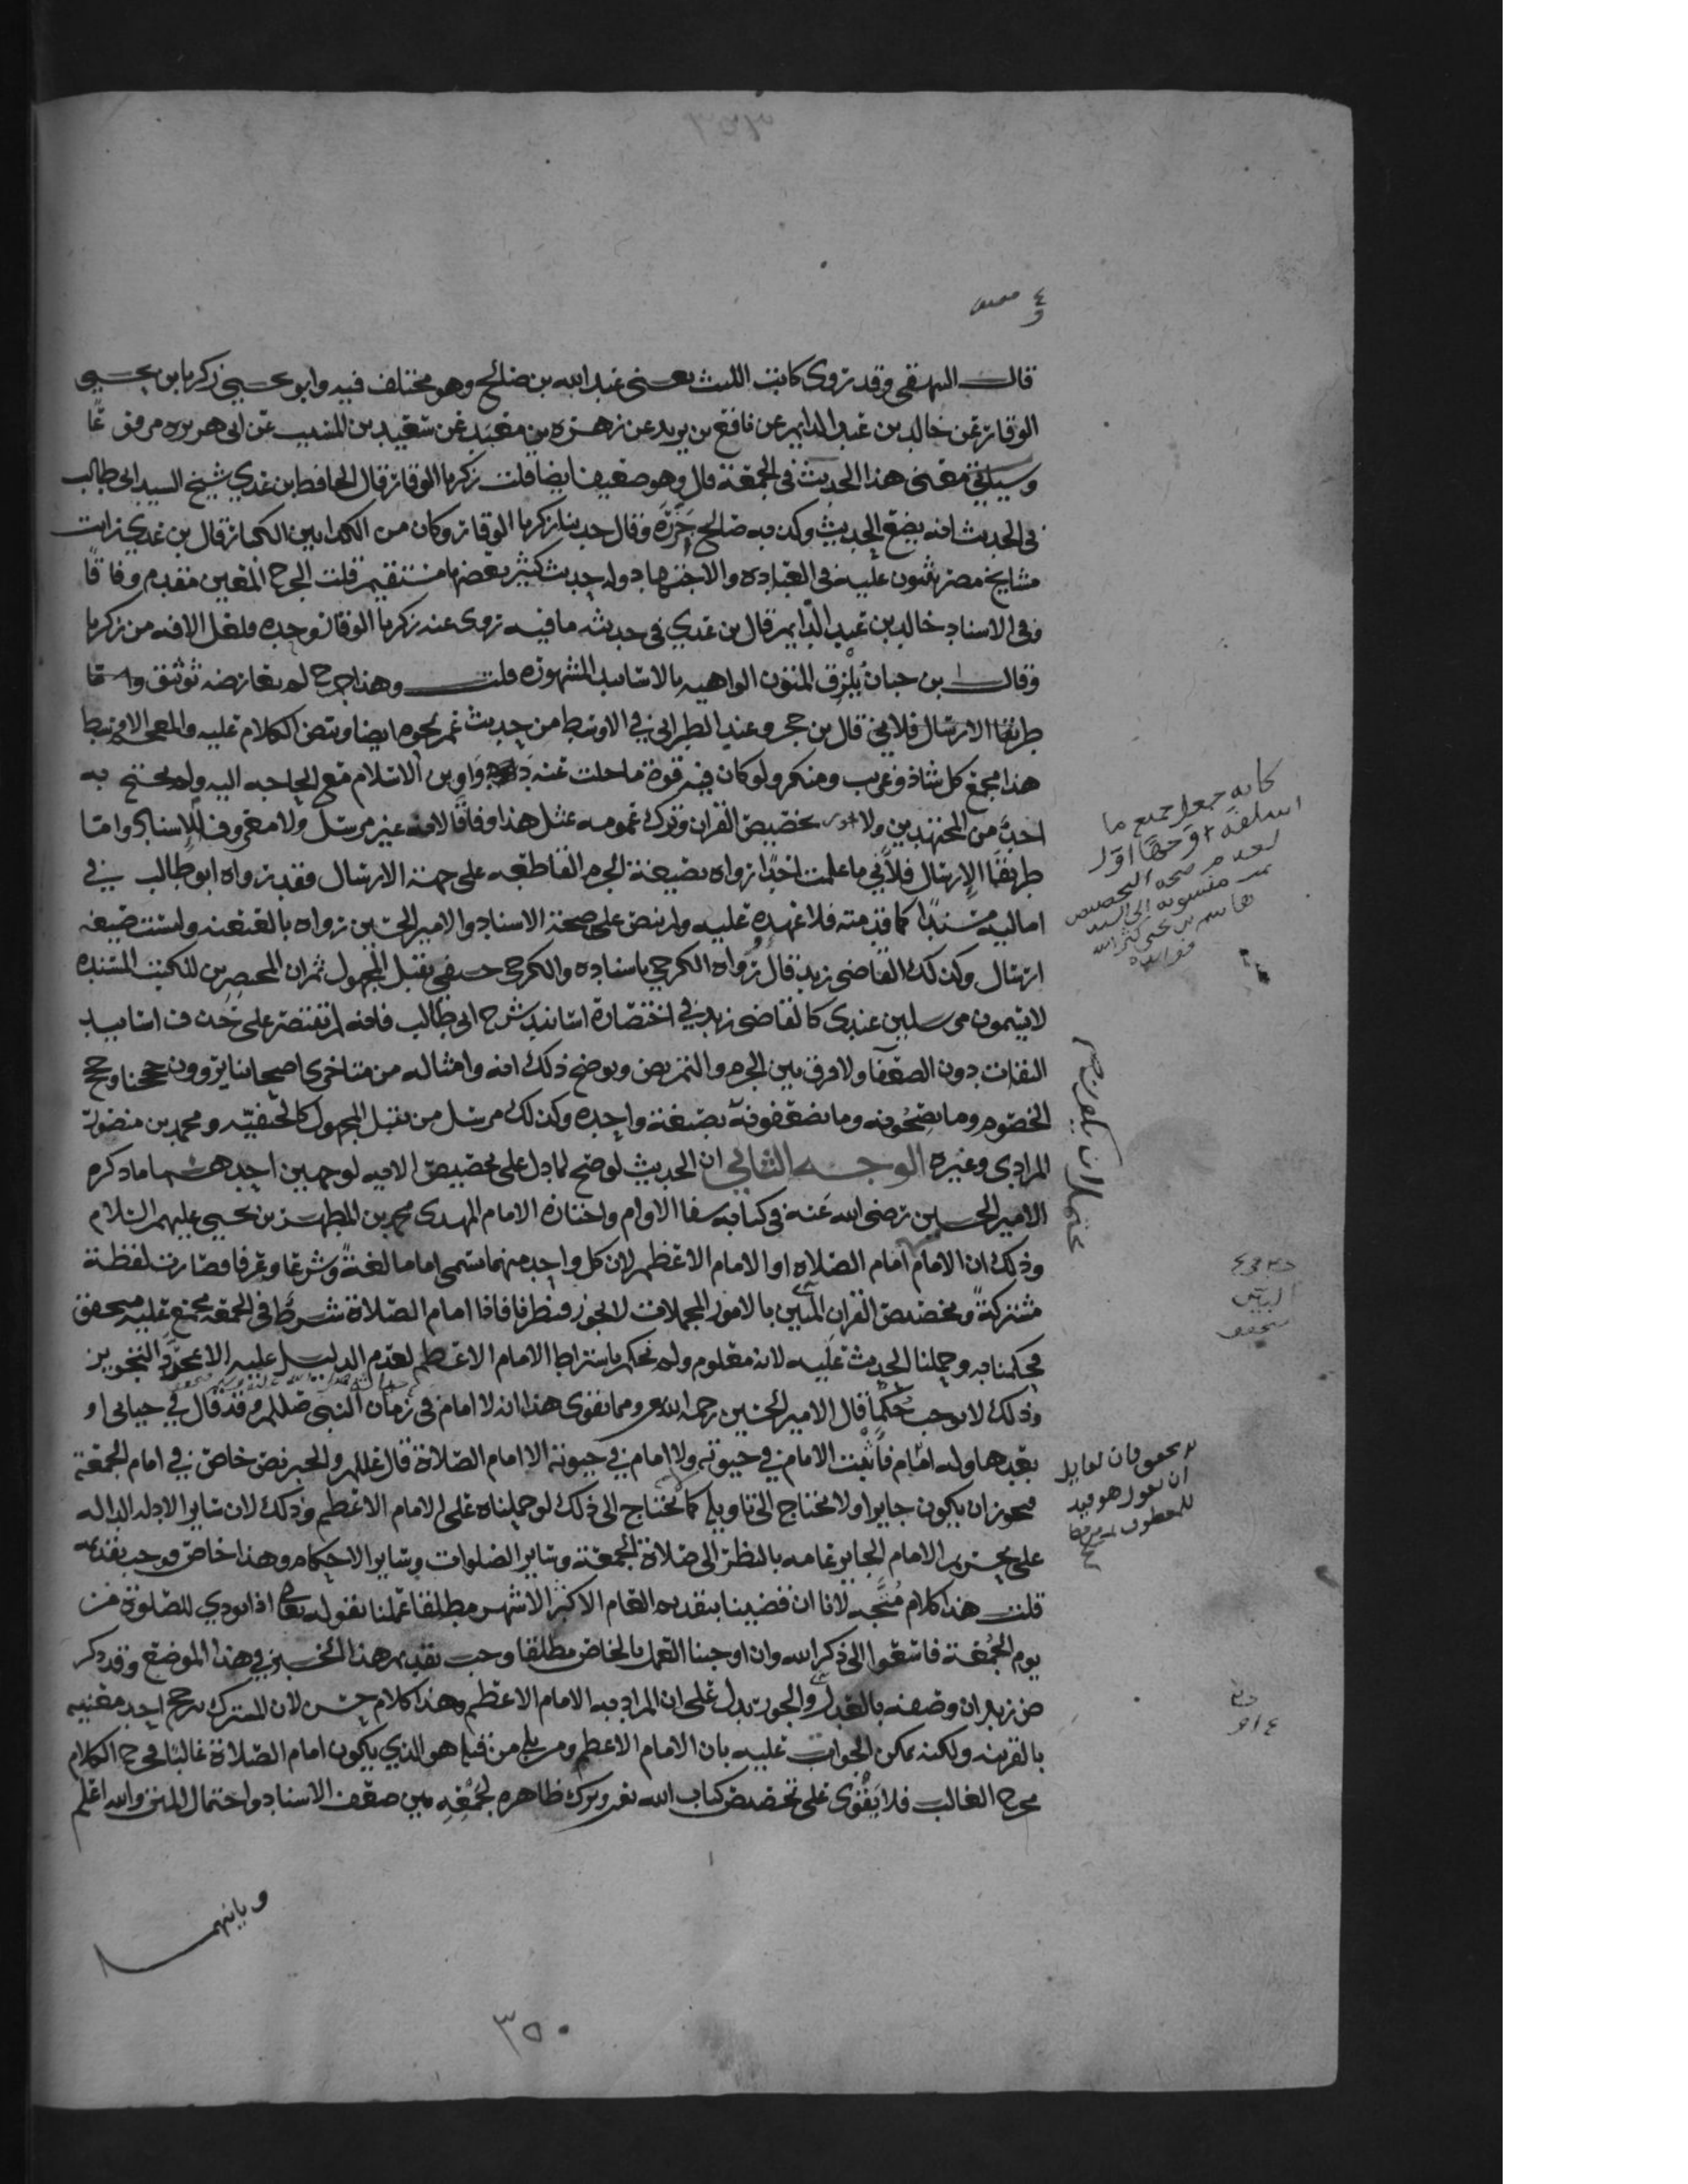 قال البيهقي وقد روى كاتب الليث يعني عبد الله بن صالح وهو مختلف فيه وابو يحيى زكريا بن يحيى
الوقار عن خالد بن عبد الدايم عن نافع بن يزيد عن زهره بن معبد عن سعيد بن المسيب عن ابي هريره مرفوعًا
وسياتي معنى هذا الحديث في الجمعة قال وهو ضعيف ايضا قلت زكريا الوقار قال الحافظ بن عدي شيخ السيد ابي طالب
في الحديث انه يضع الحديث وكذبه صالح جَزَرَه وقال حدثنا زكريا الوقار وكان من الكذابين الكبار قال بن عدي رايت
مشايخ مصر يثنون عليه في العباده والاجتهاد وله حديث كثير بعضها مستقيم قلت الجرح المعين مقدم وفاقًا
وفي الاسناد خالد بن عبد الدايم قال بن عدي في حديثه ما فيه تروى عنه زكريا الوقار وحده فلعل الافه من زكريا
وقال ابن حبان يُلْزِق المتون الواهيه بالاسانيد المشهوره قلت وهذا جرح لم يعارضه توثيق واما
طريقا الارسال فلاني قال بن حجر وعند الطبراني في الاوسط من حديث عمر نحوه ايضا وتتض الكلام عليه والمعجم الاوسط
هذا مجمع كل شاذ وغريب ومنكر ولو كان فيه قوة ما خلت عنه دَوَاوين الاسلام مع الحاجه اليه ولم يحتج به
احدٌ من المجتهدين ولا تخصيص القران وترك عمومه بمثل هذا وفاقًا لانه غير مرسل ولا معروف الاسناد واما
طريقَا الإرسال فلأني ما علمت احدًا رواه بصيغة الجزم القاطعه على جهة الارسال فقد رواه ابو طالب في
اماليه مسندًا كما قدمته فلا عهده عليه ولم ينص على صحة الاسناد والامير الحسين رواه بالعنعنه وليست صيغه
ارسال وكذلك القاضي زيد قال رواه الكرخي باسناده والكرخي حنفي يقبل المجهول ثم ان المختصرين للكتب المسنده
لا يسمون مرسلين عندي كالقاضي زيد في اختصاره اسانيد شرح ابي طالب فانه لم يقتصر على حذف اسانيد
الثقات دون الضعفا ولا فرق بين الجزم والتمريض ويوضح ذلك انه وامثاله من متاخري اصحابنا يروون حججنا وحجج
الخصوم وما يصححونه وما يضعفونه بصيغة واحده وكذلك مرسل من يقبل المجهول كالحنفيه ومحمد بن منصور
المرادي وغيره الوجه الثاني ان الحديث لو صح لما دل على تخصيص الايه لوجهين احدهما ما ذكره
الامير الحسين رضي الله عَنه في كتابه شفا الاوام واختاره الامام المهدي محمد بن المطهر بن يحيى عليهم السلام
وذلك ان الامام امام الصلاه او الامام الاعظم لان كل واحد منهما يسمى اماما لغةً وشرعًا وعرفا فصارت لفظة
مشتركةً وتخصيص القران المبين بالامور المجملات لا يجوز فنظرنا فاذا امام الصلاة شرط في الجمعه مجمع عليه
فحكمنا به وحملنا الحديث عليه لانه معلوم ولم نحكم باشتراط الامام الاعظم لعدم الدليل عليه الا مجرّد التجويز
وذلك لا يوجب حُكْمًا قال الامير الحسين رحمه الله ومما يقوي هذا انه لا امام في زمان النبي صللم وقد قال في حياتي او
بعدها وله امام فأثبت الامام في حيوته ولا امام في حيوته الا امام الصلاة قال عللم والخبر نص خاص في امام الجمعه
فيجوز ان يكون جايرا ولا يحتاج الى تاويل كما يحتاج الى ذلك لو حملناه على الامام الاعظم وذلك لان ساير الادله الداله
على تحريم الامام الجاير عامه بالنظر الى صلاة الجمعة وساير الصلوات وساير الاحكام وهذا خاص فوجب تقديمه
قلت هذا كلام مُتَّجه لانا ان قضينا بتقديم العام الاكثر الاشهر مطلقا عملنا بقوله تعالى اذا نودي للصلوة من
يوم الجُمُعة فاسعوا الى ذكر الله وان اوجبنا العمل بالخاص مطلقا وجب تقديم هذا الخبر في هذا الموضع وقد ذكر
ض زيد ان وصفه بالعدل والجور يدل على ان المراد به الامام الاعظم وهذا كلام حسن لان المشترك يرجح احد معنييه
بالقرينه ولكنه يمكن الجواب عليه بان الامام الاعظم ومن يلي من قبله هو الذي يكون امام الصلاة غالبًا فخرج الكلام
مخرج الغالب فلا يَقْوَى على تخصيص كتاب الله تعالى وترك ظاهره لجَمْعِهِ بين ضعف الاسناد واحتمال المتن والله اعلم
وثانيهما
٣٥٠